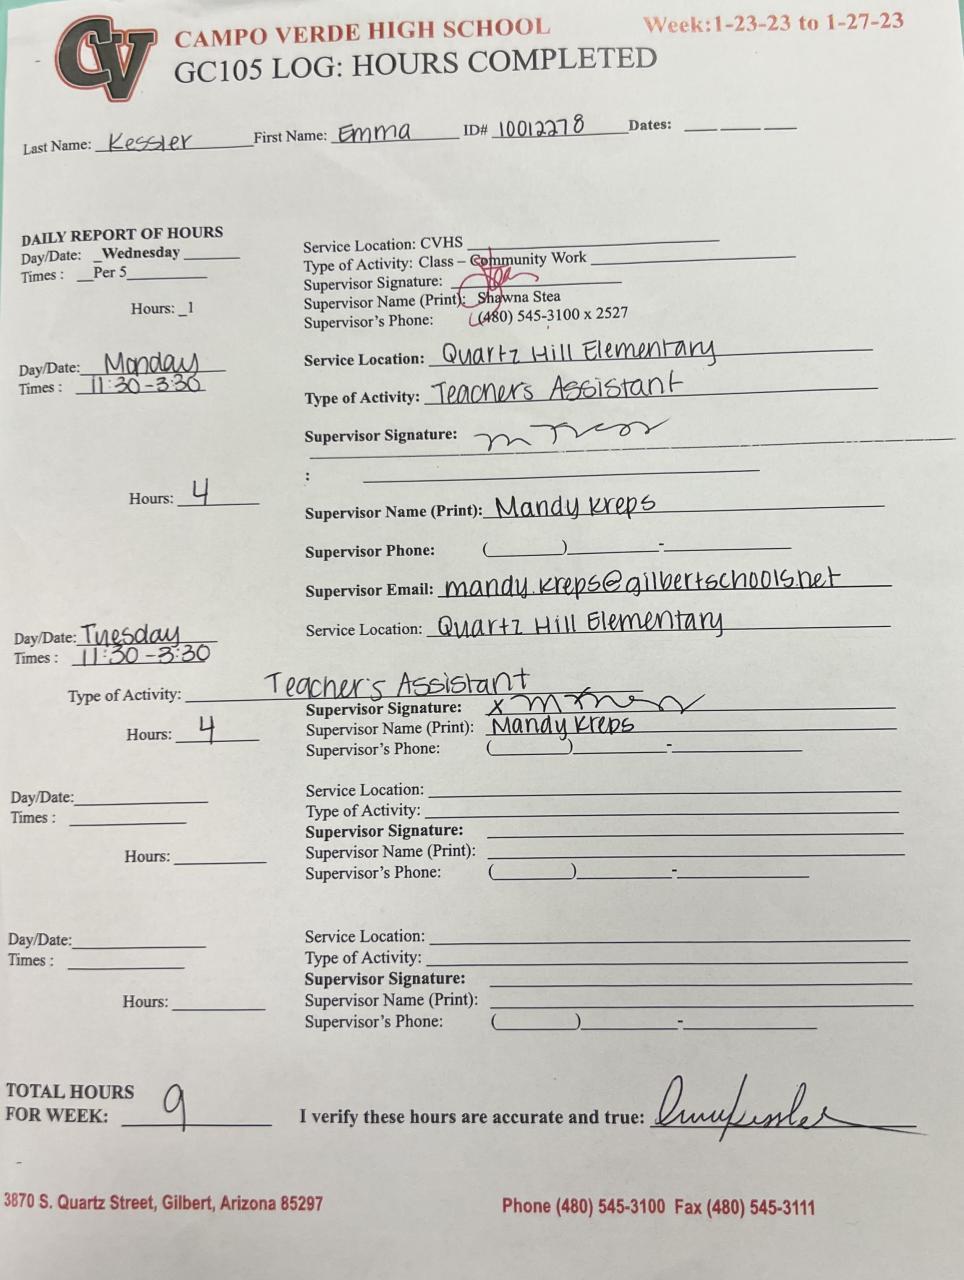 CV
CAMPO VERDE HIGH SCHOOL Week:1-23-23 to 1-27-23
GC105 LOG: HOURS COMPLETED
Last Name: Kessler First Name: Emma ID# 10012278 Dates: ____ ____ ____
DAILY REPORT OF HOURS
Day/Date: _Wednesday______
Times : __Per 5________
Hours: _1
Service Location: CVHS
Type of Activity: Class – Community Work
Supervisor Signature:
Supervisor Name (Print): Shawna Stea
Supervisor's Phone: (480) 545-3100 x 2527
Day/Date: Monday
Times : 11:30-3:30
Hours: 4
Service Location: Quartz Hill Elementary
Type of Activity: Teacher's Assistant
Supervisor Signature:
:
Supervisor Name (Print): Mandy Kreps
Supervisor Phone: (______)______-______
Supervisor Email: mandy.kreps@gilbertschools.net
Day/Date: Tuesday
Times : 11:30-3:30
Service Location: Quartz Hill Elementary
Type of Activity: Teacher's Assistant
Hours: 4
Supervisor Signature: x
Supervisor Name (Print): Mandy Kreps
Supervisor's Phone: (______)______-______
Day/Date:
Times :
Hours:
Service Location:
Type of Activity:
Supervisor Signature:
Supervisor Name (Print):
Supervisor's Phone: (______)______-______
Day/Date:
Times :
Hours:
Service Location:
Type of Activity:
Supervisor Signature:
Supervisor Name (Print):
Supervisor's Phone: (______)______-______
TOTAL HOURS
FOR WEEK: 9
I verify these hours are accurate and true: Emma Kessler
3870 S. Quartz Street, Gilbert, Arizona 85297 Phone (480) 545-3100 Fax (480) 545-3111